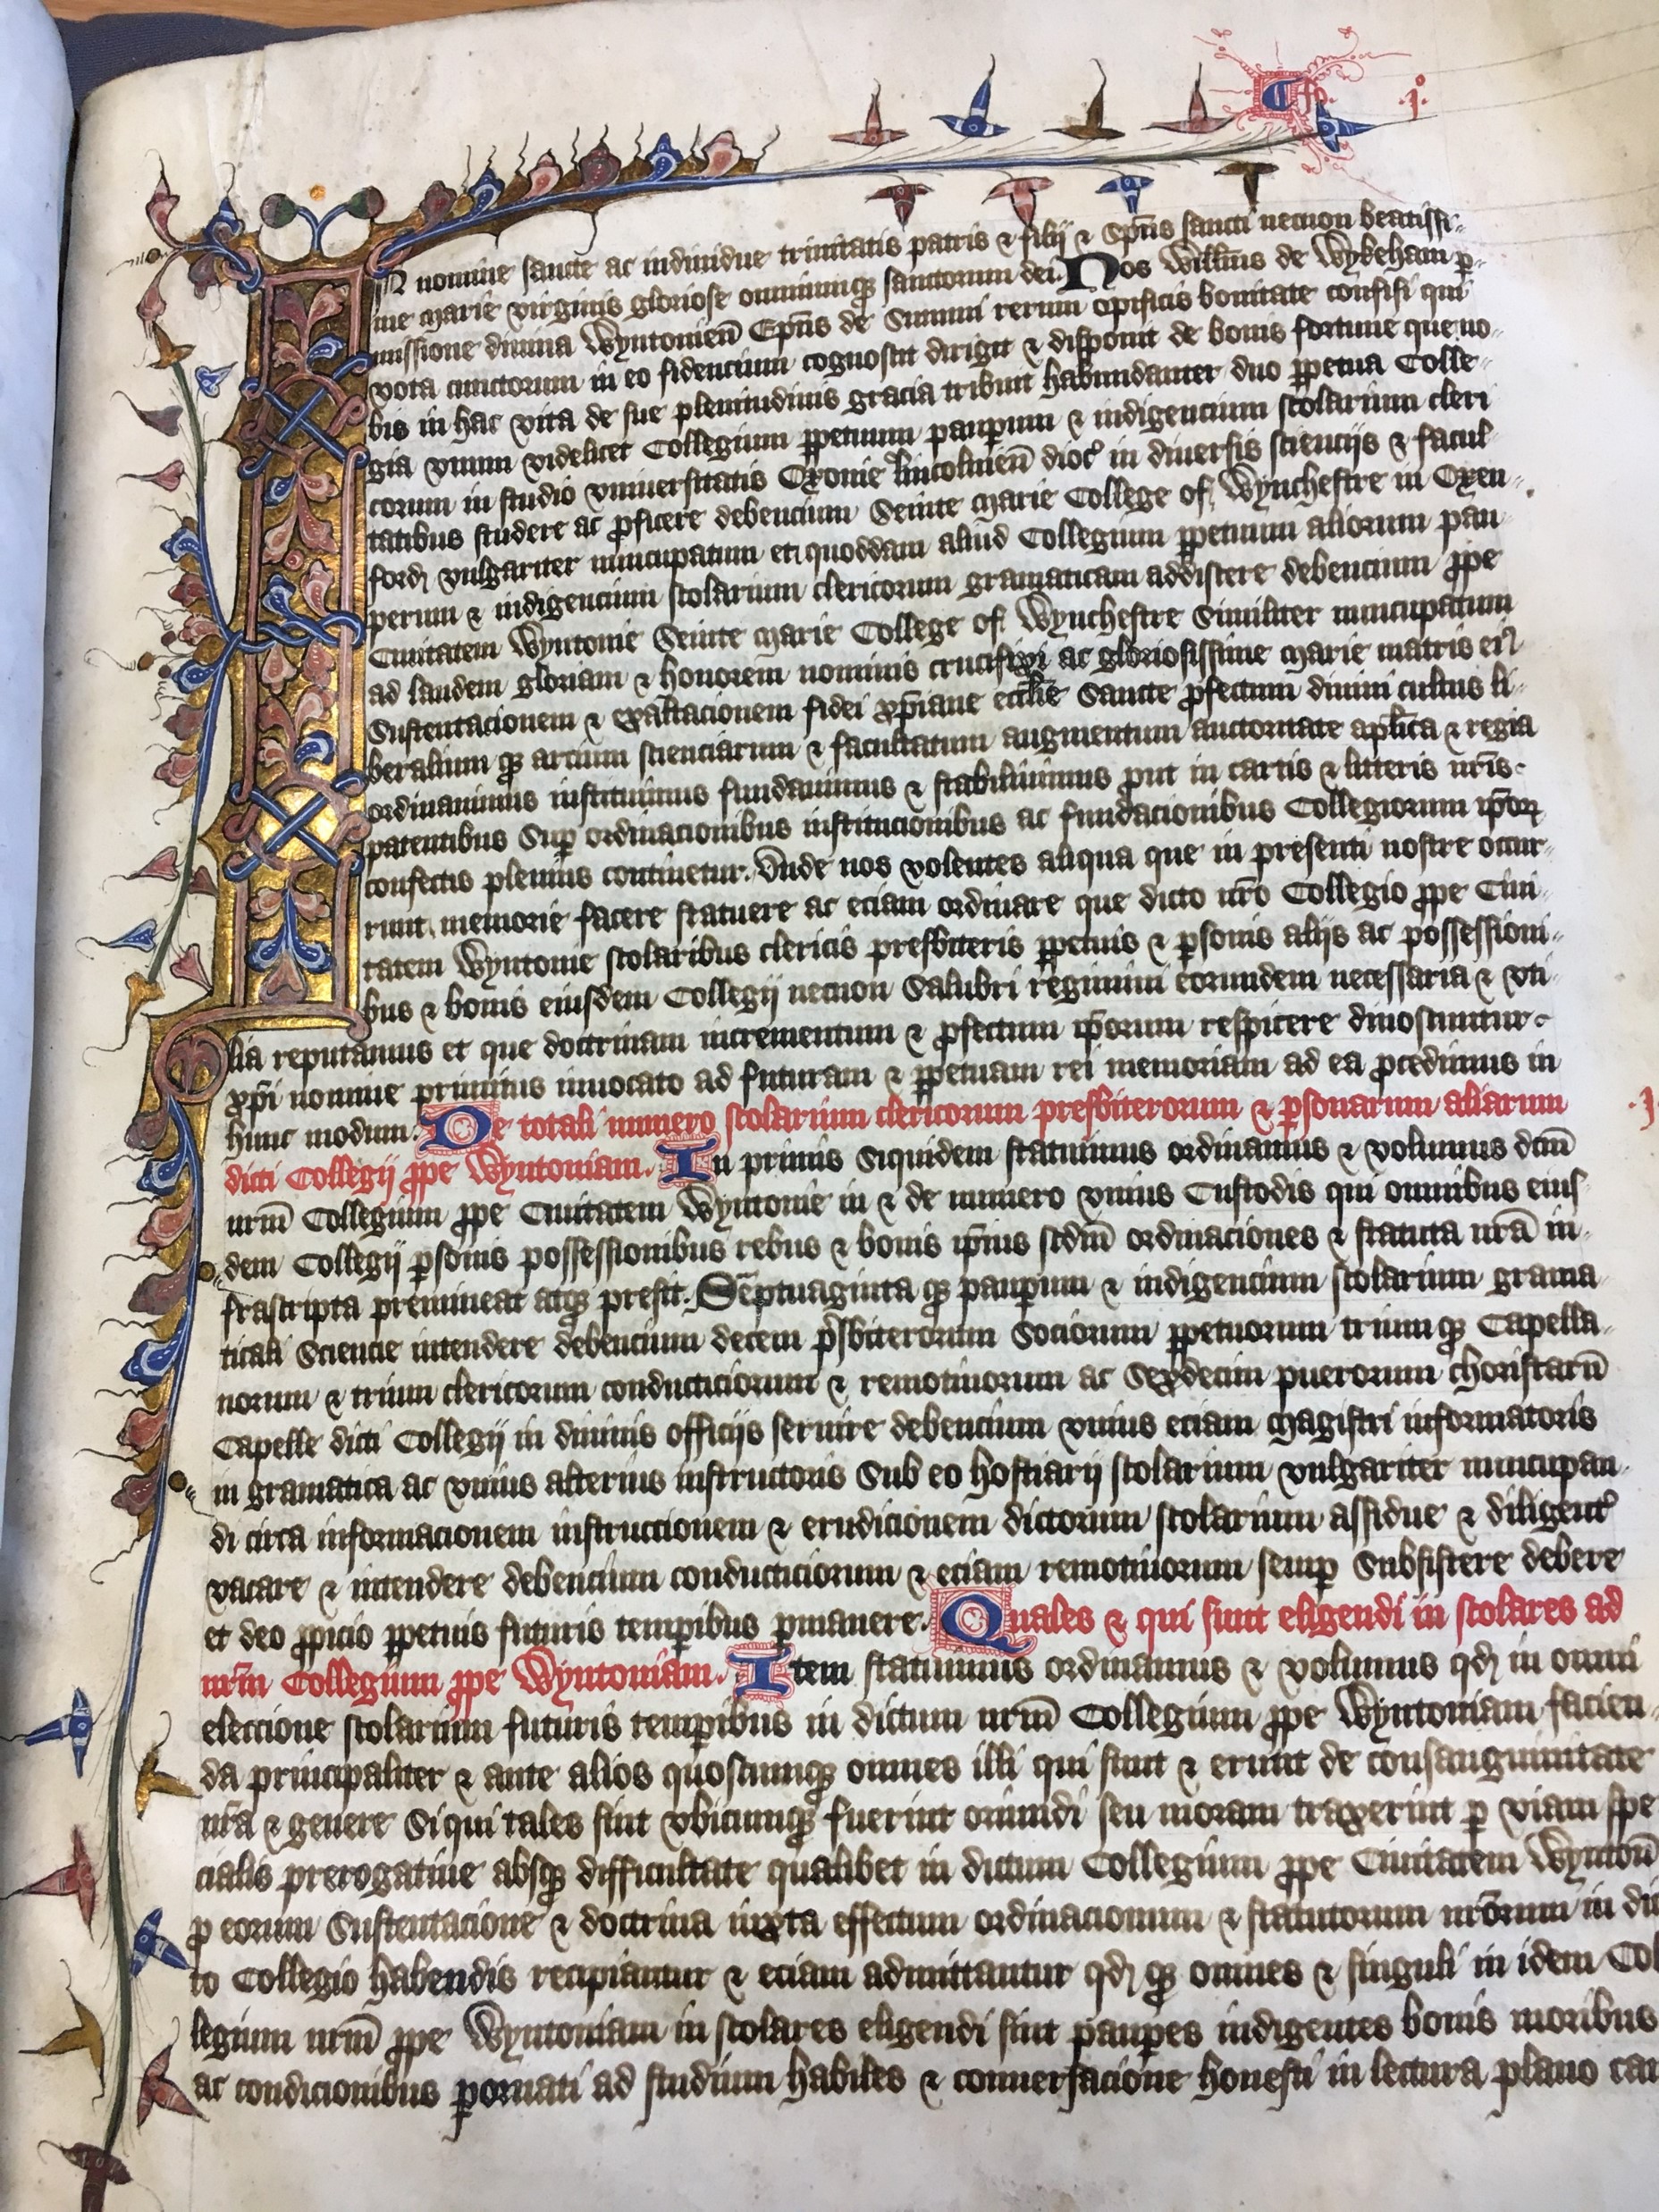 Ca. .j.
In nomine sancte ac indiuidue trinitatis patris & filij & sp̄us sancti necnon beatissi-
me marie virginis gloriose omniumqꝫ sanctorum dei Nos Will̄mus de Wykeham ꝑ-
missione diuina Wyntonien̄ Ep̄us de Summi rerum opificis bonitate confisi qui
vota cunctorum in eo fidencium cognoscit dirigit & disponit de bonis fortune que no-
bis in hac vita de sue plenitudinis gracia tribuit habundanter duo ꝑpetua Colle-
gia vnum videlicet Collegium ꝑpetuum pauꝑum & indigencium scolarium cleri
corum in studio vniuersitatis Oxonie lincolnien̄ dioc̉ in diuersis sciencijs & facul-
tatibus studere ac ꝓficere debencium Seinte marie College of Wynchestre in Oxen-
ford vulgariter nuncupatum et quoddam aliud Collegium ꝑpetuum aliorum pau-
perum & indigencium scolarium clericorum gramaticam addiscere debencium ꝓpe
Ciuitatem Wyntonie Seinte marie College of Wynchestre Similiter nuncupatum
ad laudem gloriam & honorem nominis crucifixi ac gloriosissime marie matris eiꝰ
Sustentacionem & exaltacionem fidei xp̄iane eccl̄ie Sancte ꝓfectum diuini cultus li-
beralium qꝫ arcium scienciarum & facultatum augmentum auctoritate apl̄ica & regia
ordinauimus instituimus fundauimus & stabiliuimus ꝓut in cartis & litteris nr̄is
patentibus Suꝑ ordinacionibus institucionibus ac fundacionibus Collegiorum ip̄oꝝ
confectis plenius continetur. Vnde nos volentes aliqua que in presenti nostre occur-
runt memorie facere statuere ac eciam ordinare que dicto nr̄o Collegio ꝓpe Ciui-
tatem Wyntonie scolaribus clericis presbiteris ꝑpetuis & ꝑsonis alijs ac possessioni-
bus & bonis eiusdem Collegij necnon Salubri regimini eorundem necessaria & vti-
lia reputamus et que doctrinam incrementum & ꝓfectum ip̄orum respicere dinoscuntur
xp̄i nomine primitus inuocato ad futuram & ꝑpetuam rei memoriam ad ea ꝓcedimus in
hunc modum. De totali numero scolarium clericorum presbiterorum & ꝑsonarum aliarum .j.
dicti Collegij ꝓpe Wyntoniam. In primis Siquidem statuimus ordinamus & volumus dc̄m
nr̄m Collegium ꝓpe Ciuitatem Wyntonie in & de numero vnius Custodis qui omnibus eius-
dem Collegij ꝑsonis possessionibus rebus & bonis ip̄ius scdm̄ ordinaciones & statuta nr̄a in-
frascripta premineat atqꝫ presit. Septuaginta qꝫ pauꝑum & indigencium scolarium grama-
ticali Sciencie intendere debencium decem p̄sbiterorum Sociorum ꝑpetuorum triumqꝫ Capella-
norum & trium clericorum conducticiorum & remotiuorum ac Sexdecim puerorum choristarū
Capelle dicti Collegij in diuinis officijs seruire debencium vnius eciam Magistri informatoris
in gramatica ac vnius alterius instructoris Sub eo hostiarij scolarium vulgariter nuncupan-
di circa informacionem instructionem & erudicionem dictorum scolarium assidue & diligent̉
vacare & intendere debencium conducticiorum & eciam remotiuorum semꝑ Subsistere debere
et deo ꝓpicio ꝑpetuis futuris temꝑibus ꝑmanere. Quales & qui sunt eligendi in scolares ad
nr̄m Collegium ꝓpe Wyntoniam. Item statuimus ordinamus & volumus qd in omni
eleccione scolarium futuris temꝑibus in dictum nr̄m Collegium ꝓpe Wyntoniam facien-
da principaliter & ante alios quoscumqꝫ omnes illi qui sunt & erunt de consanguinitate
nr̄a & genere Siqui tales sint vbicumqꝫ fuerint oriundi seu moram traxerint ꝑ viam spe
cialis prerogatiue absqꝫ difficultate qualibet in dictum Collegium ꝓpe Ciuitatem Wynton̄
ꝓ eorum Sustentacione & doctrina iuxta effectum ordinacionum & statutorum nr̄orum in dic
to Collegio habendis recipiantur & eciam admittantur qd qꝫ omnes & singuli in idem Col
legium nr̄m ꝓpe Wyntoniam in scolares eligendi sint pauꝑes indigentes bonis moribus
ac condicionibus ꝑornati ad studium habiles & conuersacione honesti in lectura plano can